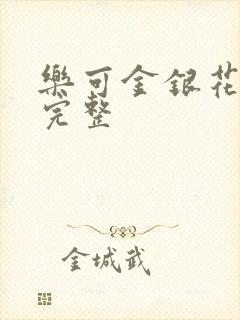 樂可金銀花
完整
金城武